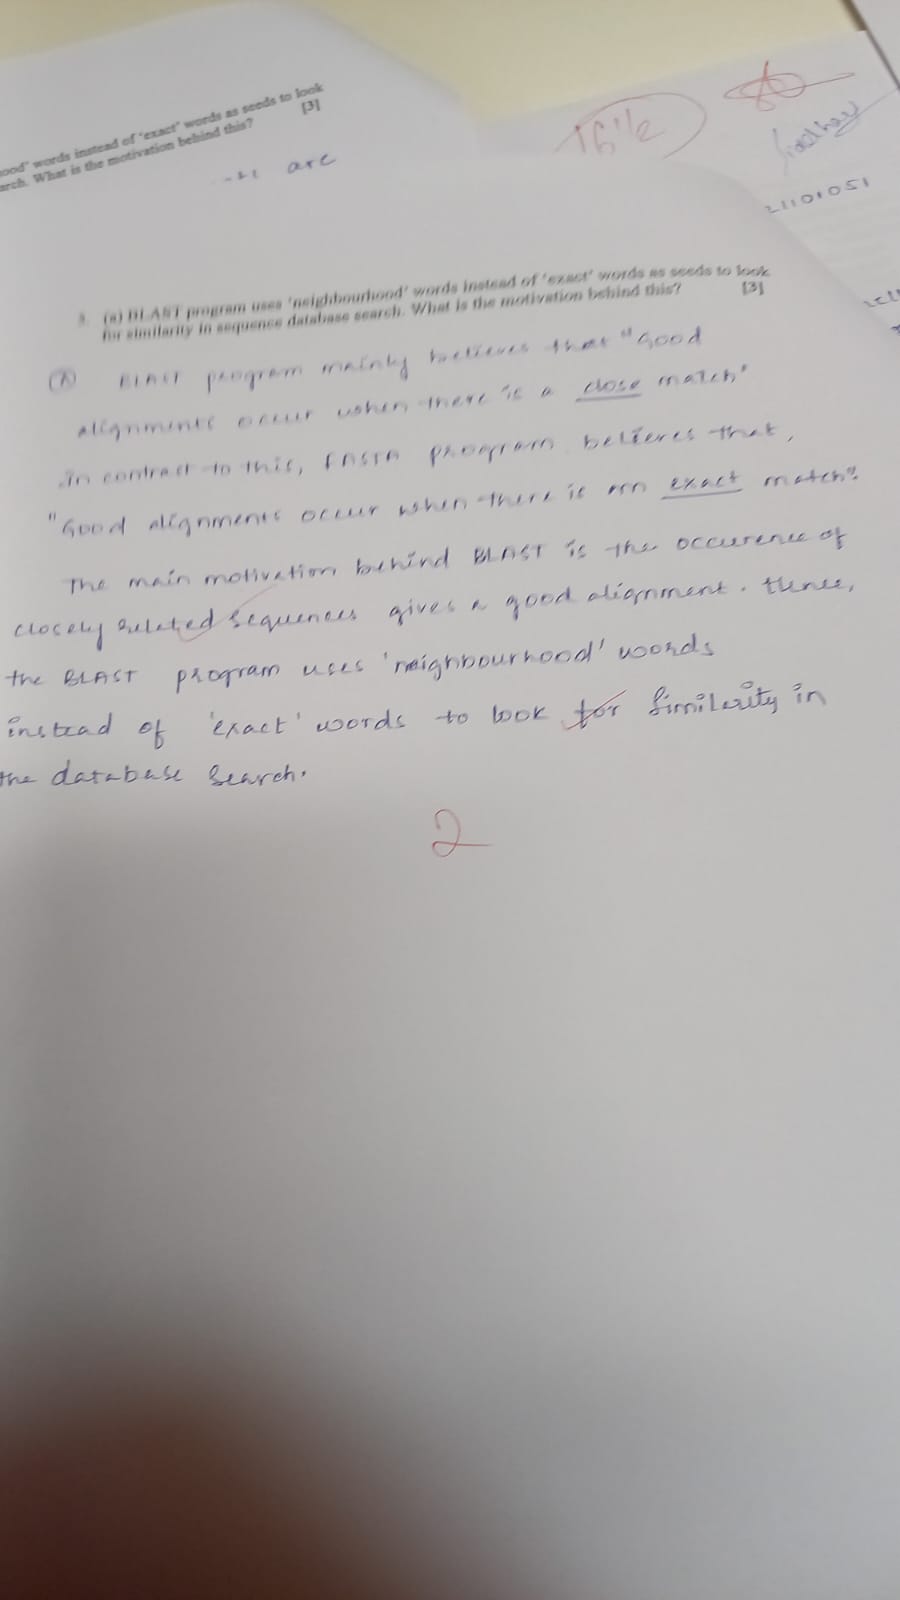 ood' words instead of 'exact' words as seeds to look
arch. What is the motivation behind this? [3]
are
16 1/2
21101051
3. (a) BLAST program uses 'neighbourhood' words instead of 'exact' words as seeds to look
for similarity in sequence database search. What is the motivation behind this? [3]
BLAST program mainly believes that "Good
alignments occur when there is a close match"
In contrast to this, FASTA program believes that,
"Good alignments occur when there is an exact match".
The main motivation behind BLAST is the occurence of
closely related sequences gives a good alignment. Hence,
the BLAST program uses 'neighbourhood' words
instead of 'exact' words to look for similarity in
the database search.
2